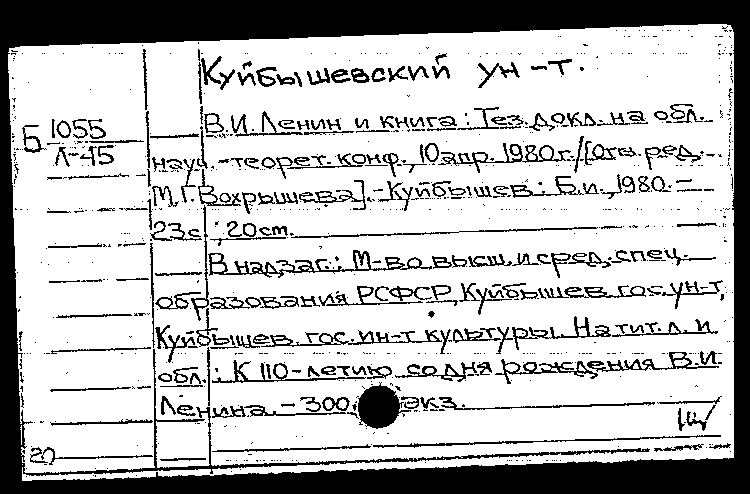 Куйбышевский ун-т.
Б 1055
Л-45
В.И. Ленин и книга: Тез. докл. на обл.
науч.-теорет. конф., 10 апр. 1980 г. / [Отв. ред.
М.Г. Вохрышева]. - Куйбышев: Б.и., 1980. -
23 с.; 20 см.
В надзаг.: М-во высш. и сред. спец.
образования РСФСР, Куйбышев. гос. ун-т,
Куйбышев. гос. ин-т культуры. На тит. л. и
обл.: К 110-летию со дня рождения В.И.
Ленина. - 300 экз.
20